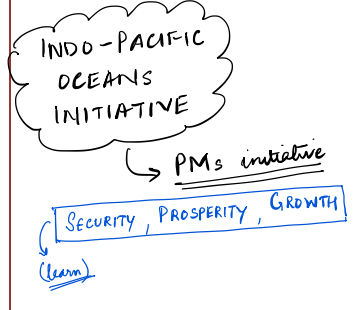 INDO-PACIFIC
OCEANS
INITIATIVE
PMs initiative
SECURITY, PROSPERITY, GROWTH
(learn)